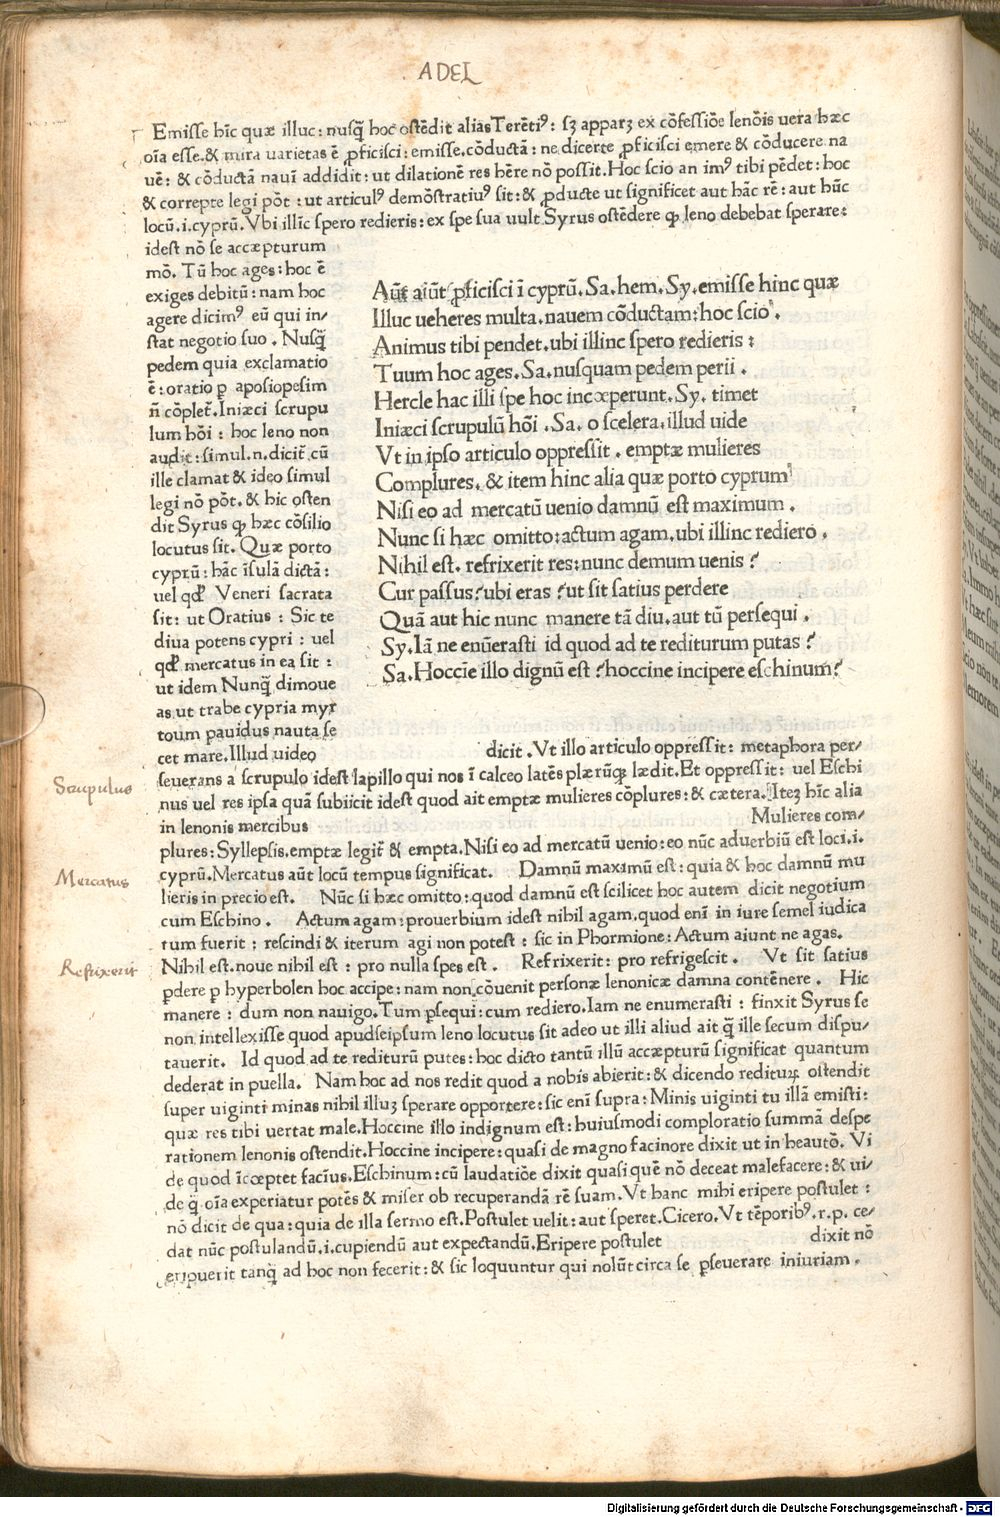 ADEL
Emisse hīc quæ illuc: nusq̄ hoc ostēdit alias Terētiꝰ: sꝫ apparꝫ ex cōfessiōe lenōis uera hæc
oīa esse. & mira uarietas ē ꝓficisci: emisse. cōductā: ne dicerte ꝓficisci emere & cōducere na
uē: & cōductā nauī addidit: ut dilationē res hēre nō possit. Hoc scio an imꝰ tibi pēdet: hoc
& correpte legi pōt: ut articulꝰ demōstratiuꝰ sit: & ꝓducte ut significet aut hāc rē: aut hūc
locū .i. cyprū. Vbi illīc spero redieris: ex spe sua uult Syrus ostēdere ꝙ leno debebat sperare:
idest nō se accæpturum
mō. Tū hoc ages: hoc ē
exiges debitū: nam hoc
agere dicimꝰ eū qui in/
stat negotio suo. Nusq̄
pedem quia exclamatio
ē: oratio ꝑ aposiopesim
ñ cōplet̄. Iniæci scrupu
lum hōi: hoc leno non
audit: simul .n. dicit̄ cū
ille clamat & ideo simul
legi nō pōt. & hic osten
dit Syrus ꝙ hæc cōsilio
locutus sit. Quæ porto
cyprū: hāc īsulā dictā:
uel qđ Veneri sacrata
sit: ut Oratius: Sic te
diua potens cypri: uel
qđ mercatus in ea sit:
ut idem Nunq̄ dimoue
as ut trabe cypria myr
toum pauidus nauta se
cet mare. Illud uideo
Aūt aiūt ꝓficisci ī cyprū. Sa. hem. Sy. emisse hinc quæ
Illuc ueheres multa. nauem cōductam: hoc scio.
Animus tibi pendet. ubi illinc spero redieris:
Tuum hoc ages. Sa. nusquam pedem perii.
Hercle hac illi spe hoc incœperunt. Sy. timet
Iniæci scrupulū hōi. Sa. o scelera. illud uide
Vt in ipso articulo oppressit. emptæ mulieres
Complures. & item hinc alia quæ porto cyprum
Nisi eo ad mercatū uenio damnū est maximum.
Nunc si hæc omitto: actum agam. ubi illinc rediero.
Nihil est. refrixerit res: nunc demum uenis?
Cur passus? ubi eras? ut sit satius perdere
Quā aut hic nunc manere tā diu. aut tū persequi.
Sy. Iā ne enūerasti id quod ad te rediturum putas?
Sa. Hoccīe illo dignū est? hoccine incipere eschinum?
dicit. Vt illo articulo oppressit: metaphora per/
seuerans a scrupulo idest lapillo qui nos ī calceo latēs plærūqꝫ lædit. Et oppressit: uel Eschi
nus uel res ipsa quā subiicit idest quod ait emptæ mulieres cōplures: & cætera. Iteꝫ hīc alia
in lenonis mercibus Mulieres com/
plures: Syllepsis. emptæ legit̄ & empta. Nisi eo ad mercatū uenio: eo nūc aduerbiū est loci .i.
cyprū. Mercatus aūt locū tempus significat. Damnū maximū est: quia & hoc damnū mu
lieris in precio est. Nūc si hæc omitto: quod damnū est scilicet hoc autem dicit negotium
cum Eschino. Actum agam: prouerbium idest nihil agam. quod enī in iure semel iudica
tum fuerit: rescindi & iterum agi non potest: sic in Phormione: Actum aiunt ne agas.
Nihil est. noue nihil est: pro nulla spes est. Refrixerit: pro refrigescit. Vt sit satius
ꝑdere ꝑ hyperbolen hoc accipe: nam non cōuenit personæ lenonicæ damna contēnere. Hic
manere: dum non nauigo. Tum ꝑsequi: cum rediero. Iam ne enumerasti: finxit Syrus se
non intellexisse quod apud seipsum leno locutus sit adeo ut illi aliud ait q̄ ille secum dispu/
tauerit. Id quod ad te rediturū putes: hoc dicto tantū illū accæpturū significat quantum
dederat in puella. Nam hoc ad nos redit quod a nobis abierit: & dicendo redituꝝ ostendit
super uiginti minas nihil illuꝫ sperare opportere: sic enī supra: Minis uiginti tu illā emisti:
quæ res tibi uertat male. Hoccine illo indignum est: huiusmodi comploratio summā despe
rationem lenonis ostendit. Hoccine incipere: quasi de magno facinore dixit ut in heautō. Vi
de quod īcœptet facīus. Eschinum: cū laudatiōe dixit quasi quē nō deceat malefacere: & ui/
de q̄ oīa experiatur potēs & miser ob recuperandā rē suam. Vt hanc mihi eripere postulet:
nō dicit de qua: quia de illa sermo est. Postulet uelit: aut speret. Cicero. Vt tēporibꝰ .r.p. ce/
dat nūc postulandū .i. cupiendū aut expectandū. Eripere postulet dixit nō
eripuerit tanq̄ ad hoc non fecerit: & sic loquuntur qui nolūt circa se ꝑseuerare iniuriam.
Scrupulus
Mercatus
Refrixerit
Digitalisierung gefördert durch die Deutsche Forschungsgemeinschaft - DFG